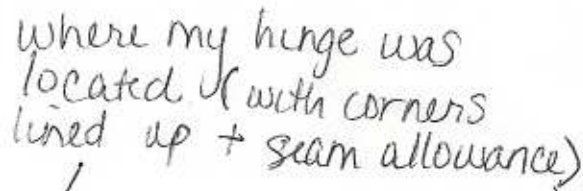 where my hinge was
located (with corners
lined up + seam allowance)